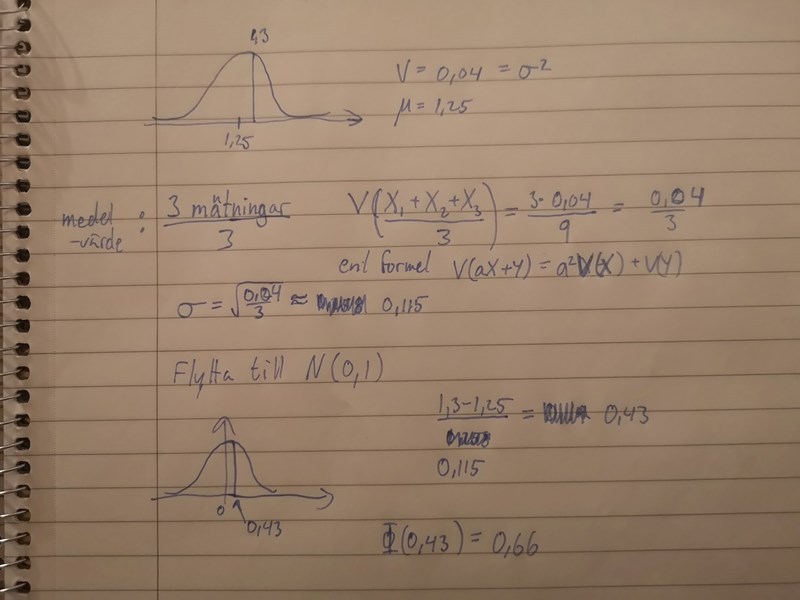 1,3
V = 0,04 = σ²
μ = 1,25
1,25
medel-värde : 3 mätningar / 3
V(X₁ + X₂ + X₃ / 3) = 3·0,04 / 9 = 0,04 / 3
enl formel V(aX+Y) = a²V(X) + V(Y)
σ = √(0,04 / 3) ≈ 0,115
Flytta till N(0,1)
1,3-1,25 / 0,115 = 0,43
0
0,43
Φ(0,43) = 0,66